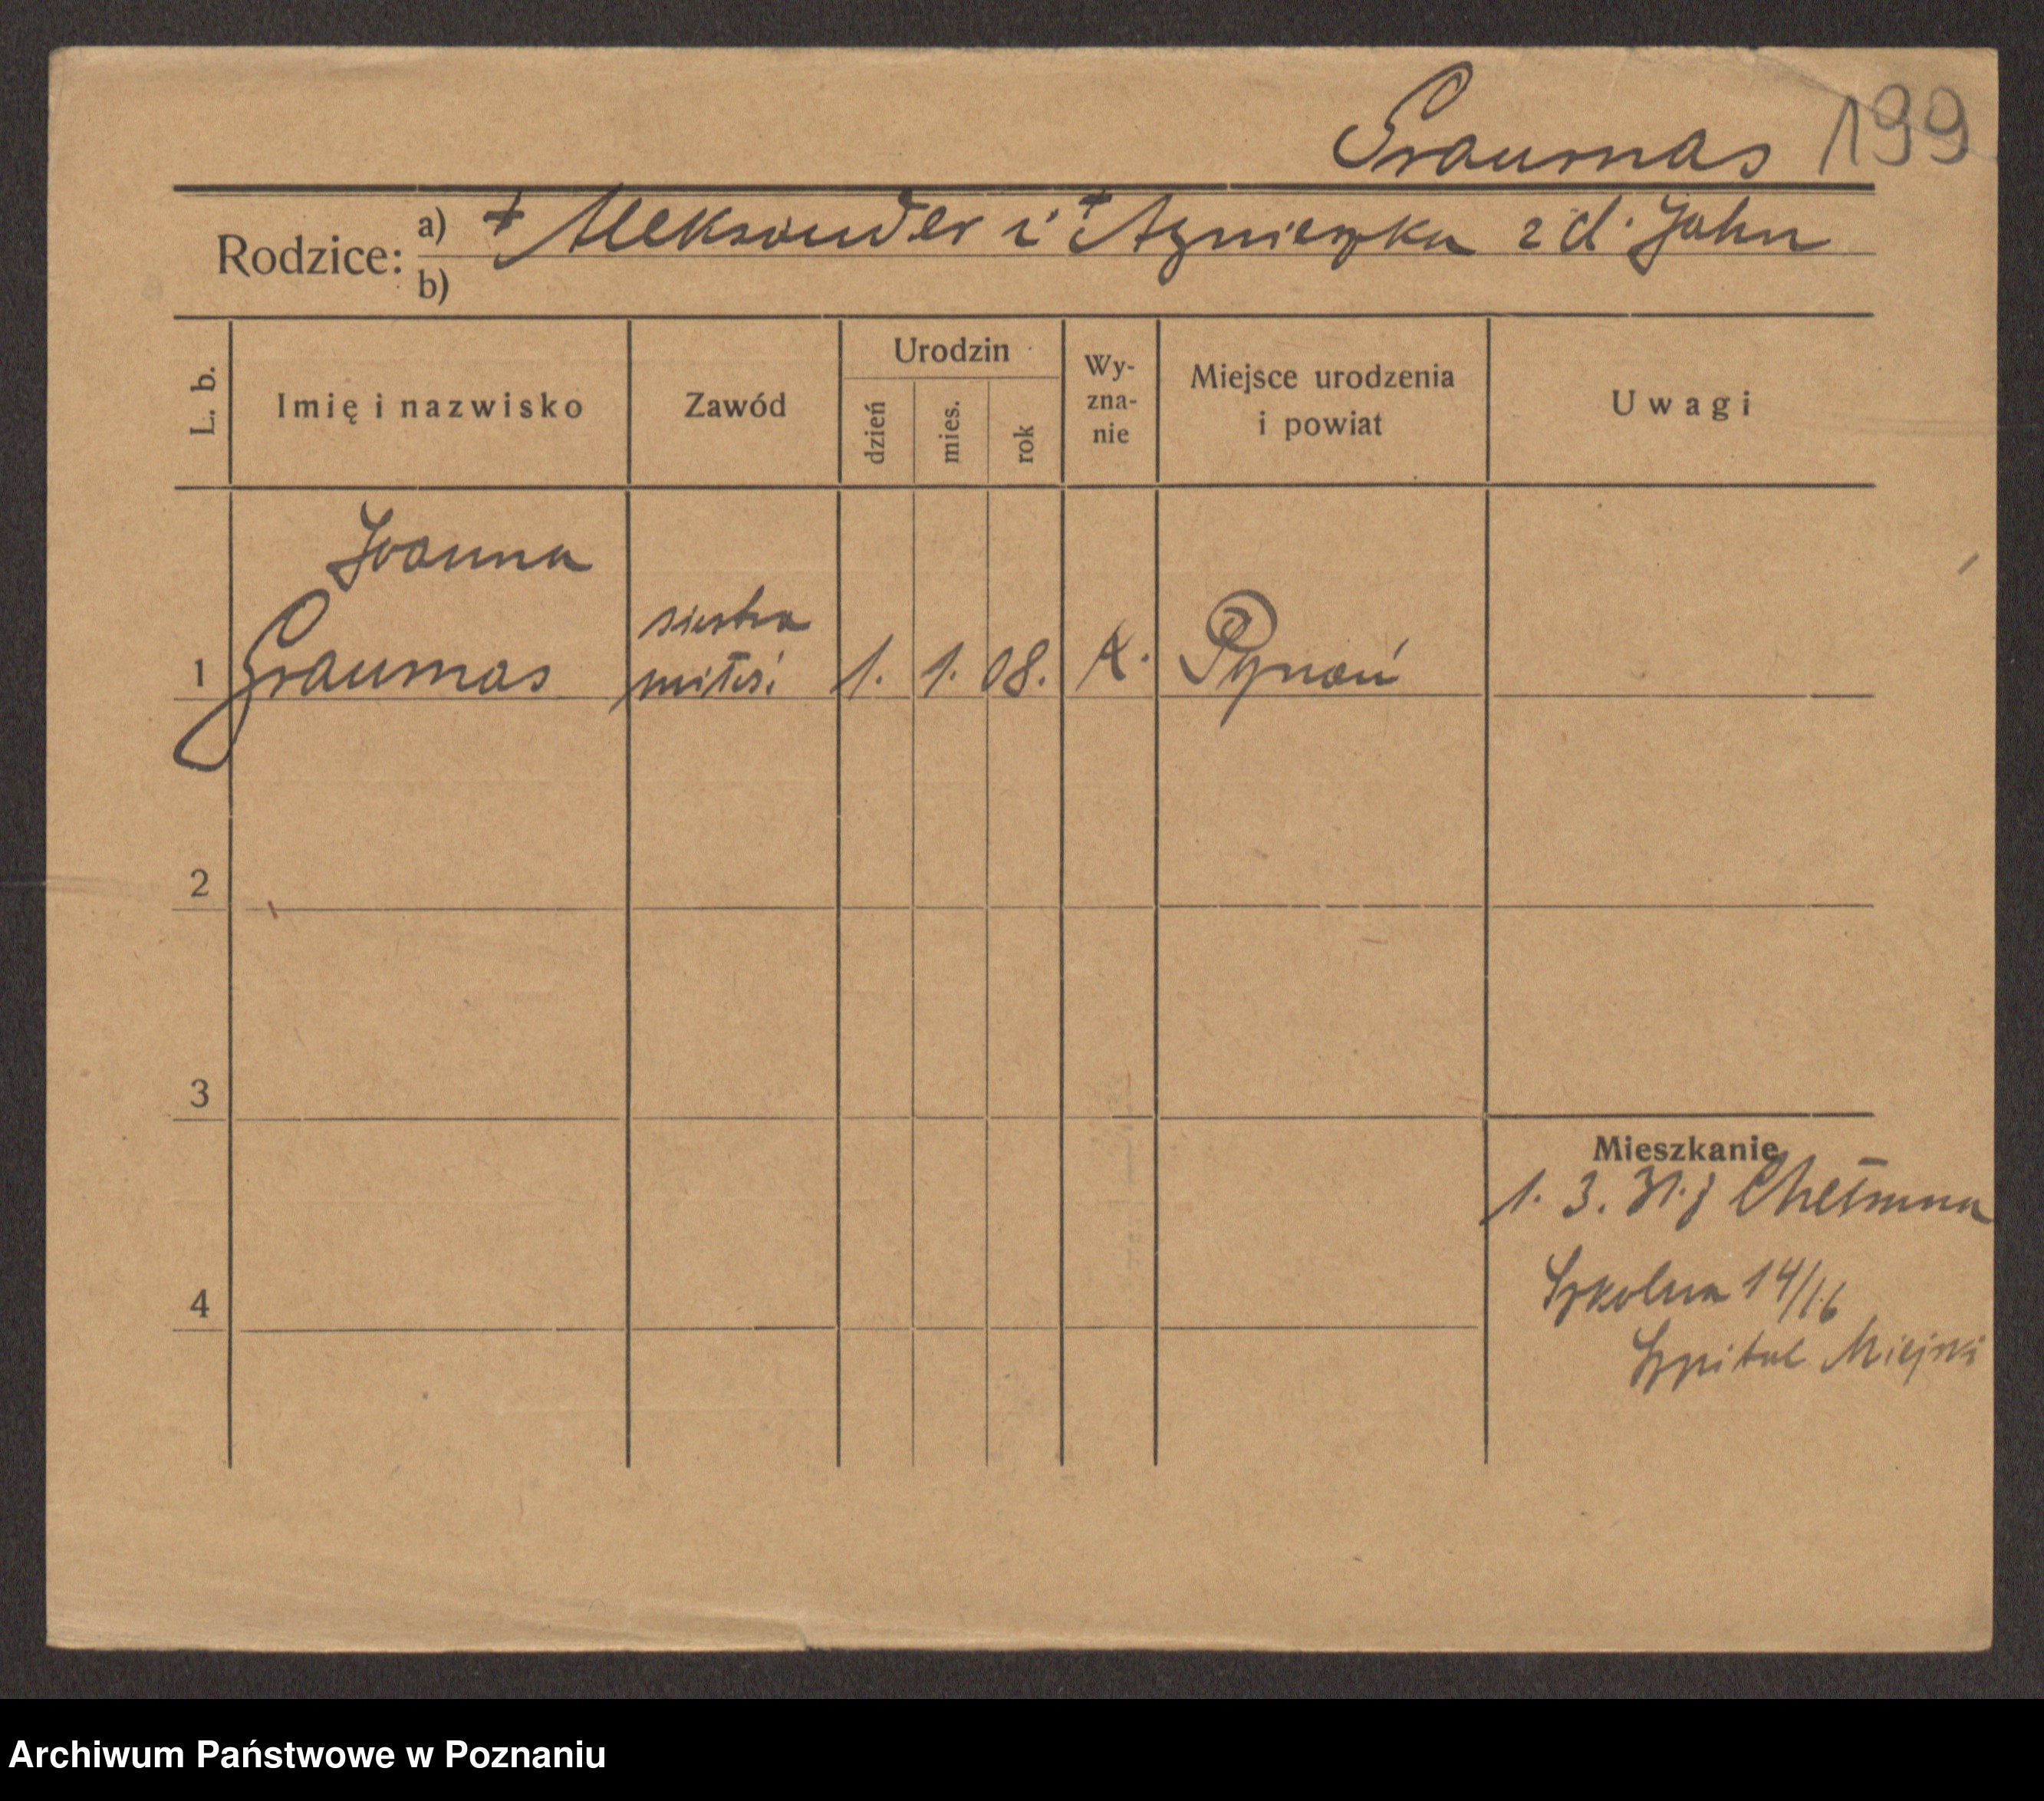 Graumas 199
Rodzice: a) + Aleksander i + Agnieszka z d. Jahn
b)
L. b.
Imię i nazwisko
Zawód
Urodzin
dzień
mies.
rok
Wy-
zna-
nie
Miejsce urodzenia
i powiat
Uwagi
Joanna
siostra
1 Graumas miłosi. 1. 1. 08. K.
2
3
Mieszkanie
1. 3. 31. z Chełmna
Szkolna 14/16
4
Szpital Miejski
Archiwum Państwowe w Poznaniu